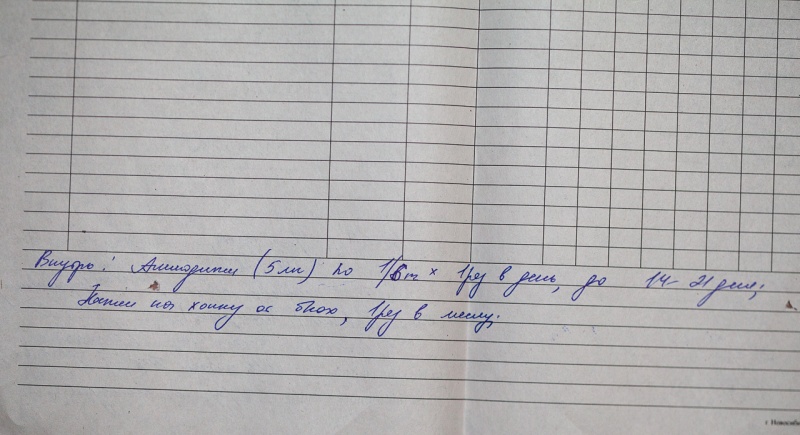 Внутрь: Амлодипин (5 мг) по 1/6 т × 1 раз в день, до 14-21 дня;
Капли на холку от блох, 1 раз в месяц;
г. Новосиби